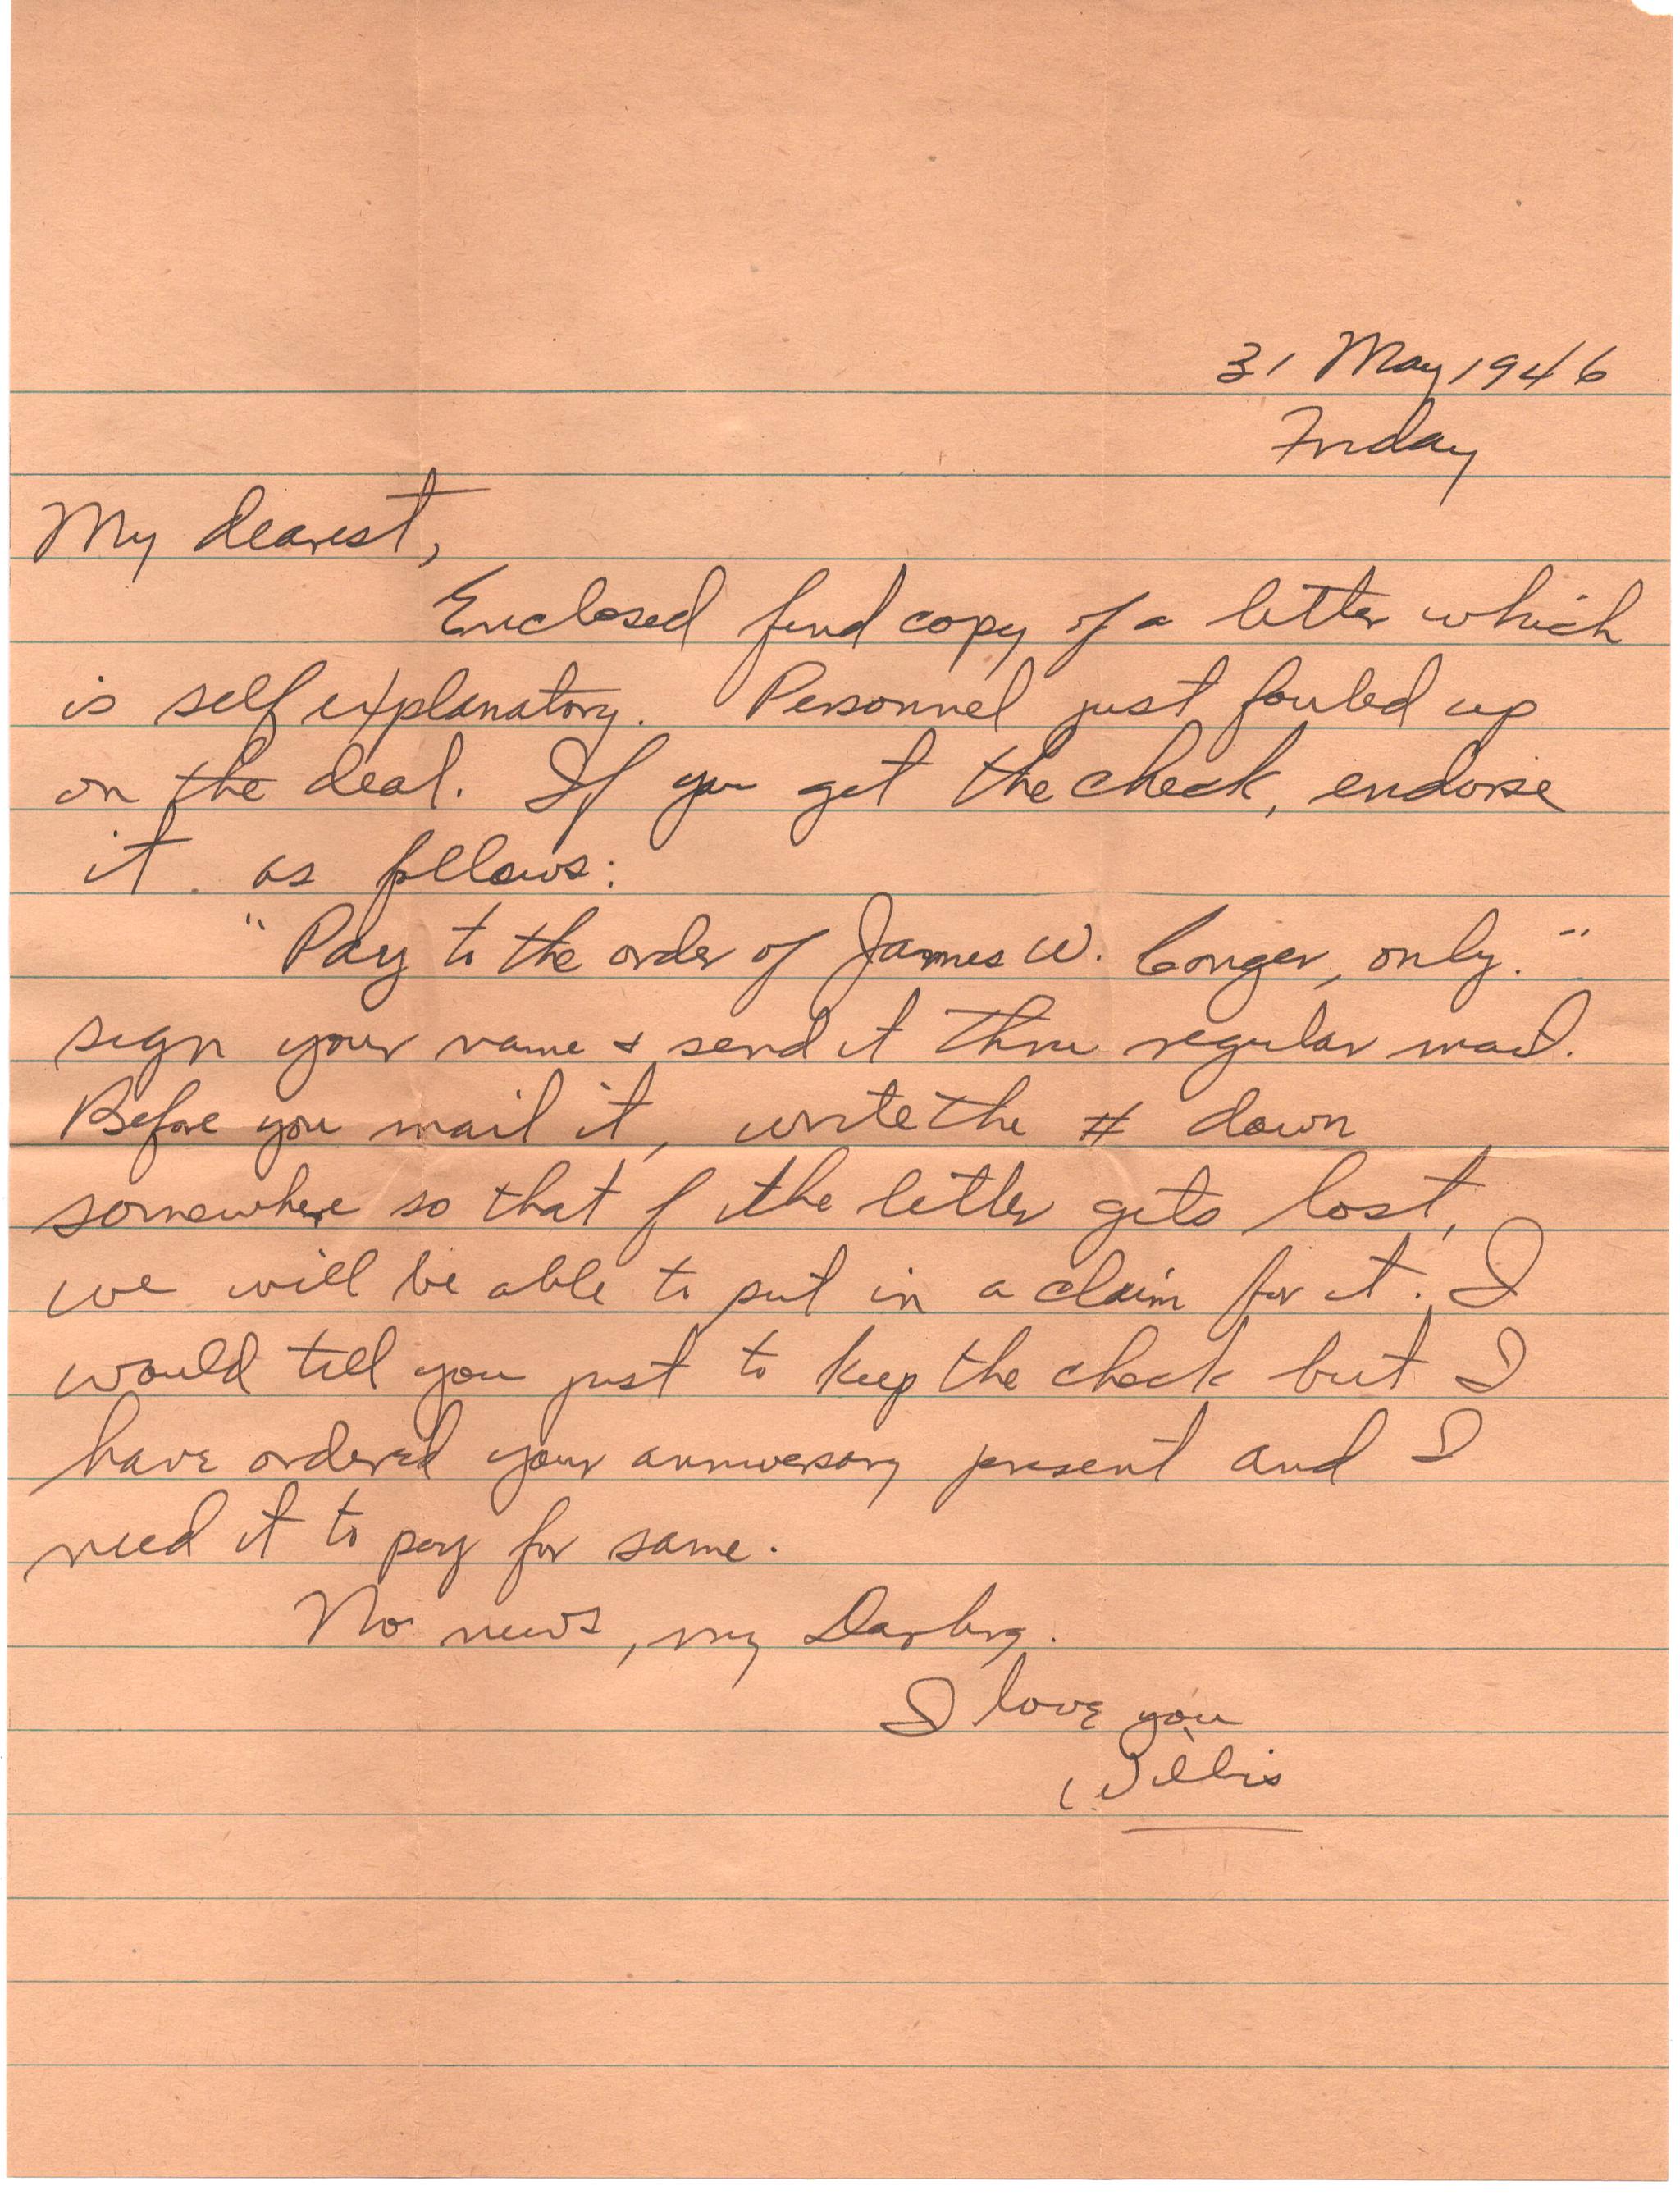 31 May 1946
Friday
My dearest,
Enclosed find copy of a letter which
is self explanatory. Personnel just fouled up
on the deal. If you get the check, endorse
it as follows:
"Pay to the order of James W. Conger, only."
sign your name + send it thru regular mail.
Before you mail it, write the # down
somewhere so that if the letter gets lost,
we will be able to put in a claim for it. I
would tell you just to keep the check but I
have ordered your anniversary present and I
need it to pay for same.
No news, my Darling.
I love you
Willis